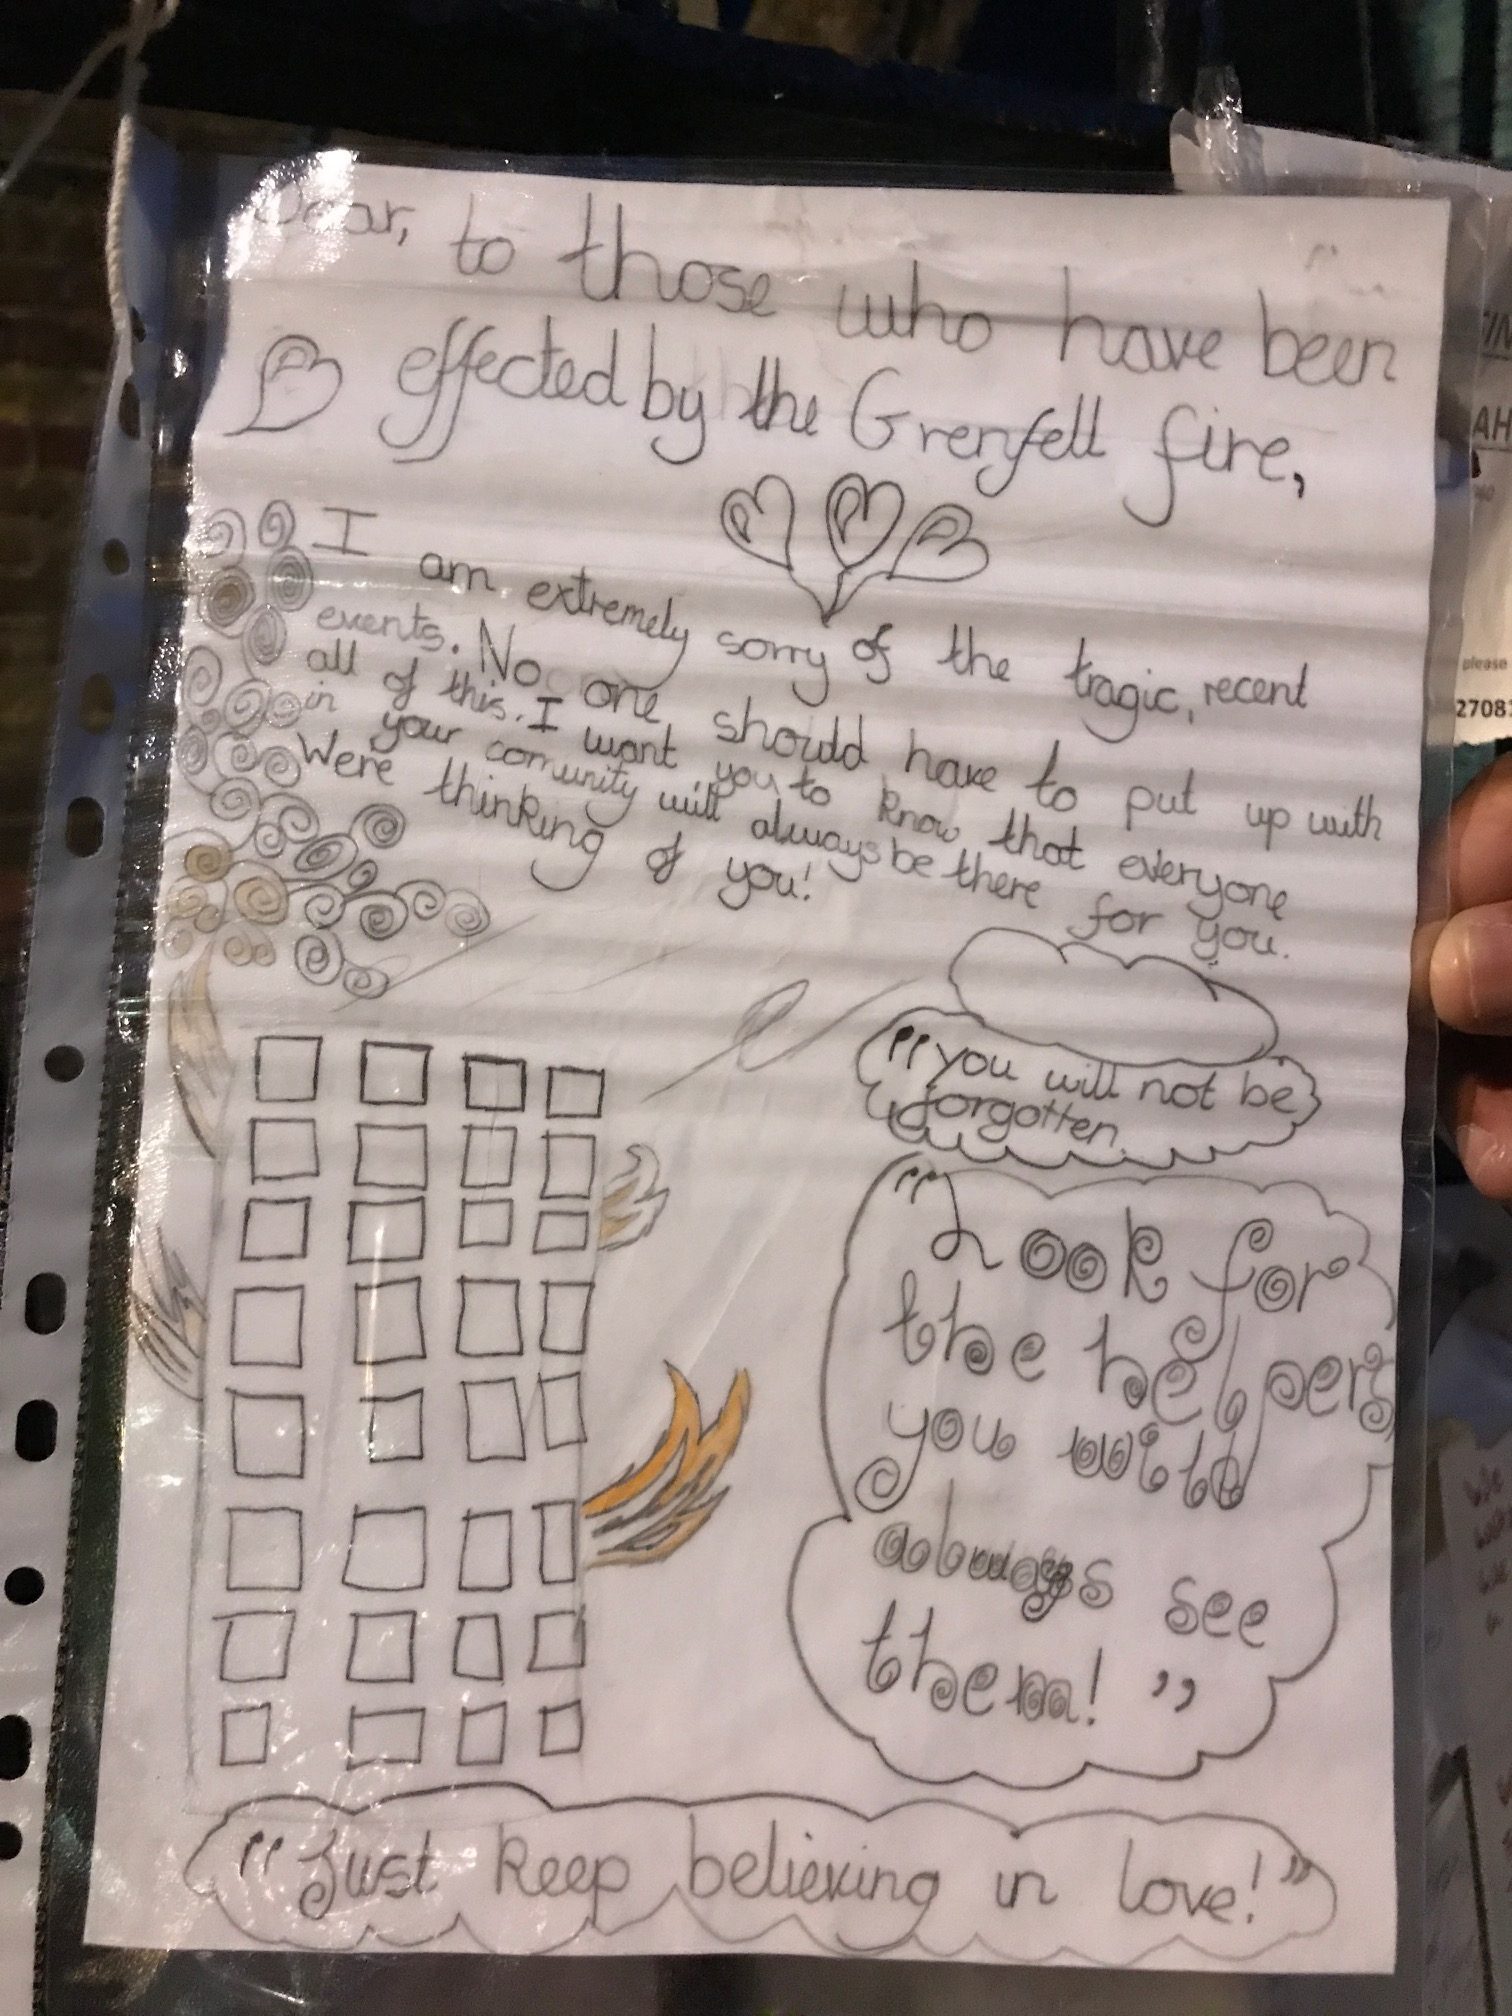 Dear, to those who have been
effected by the Grenfell fire,
I am extremely sorry of the tragic, recent
events. No one should have to put up with
all of this. I want you to know that everyone
in your comunity will always be there for you.
Were thinking of you!
"you will not be
forgotten
"Look for
the helpers
you will
always see
them!"
"Just keep believing in love!"
please